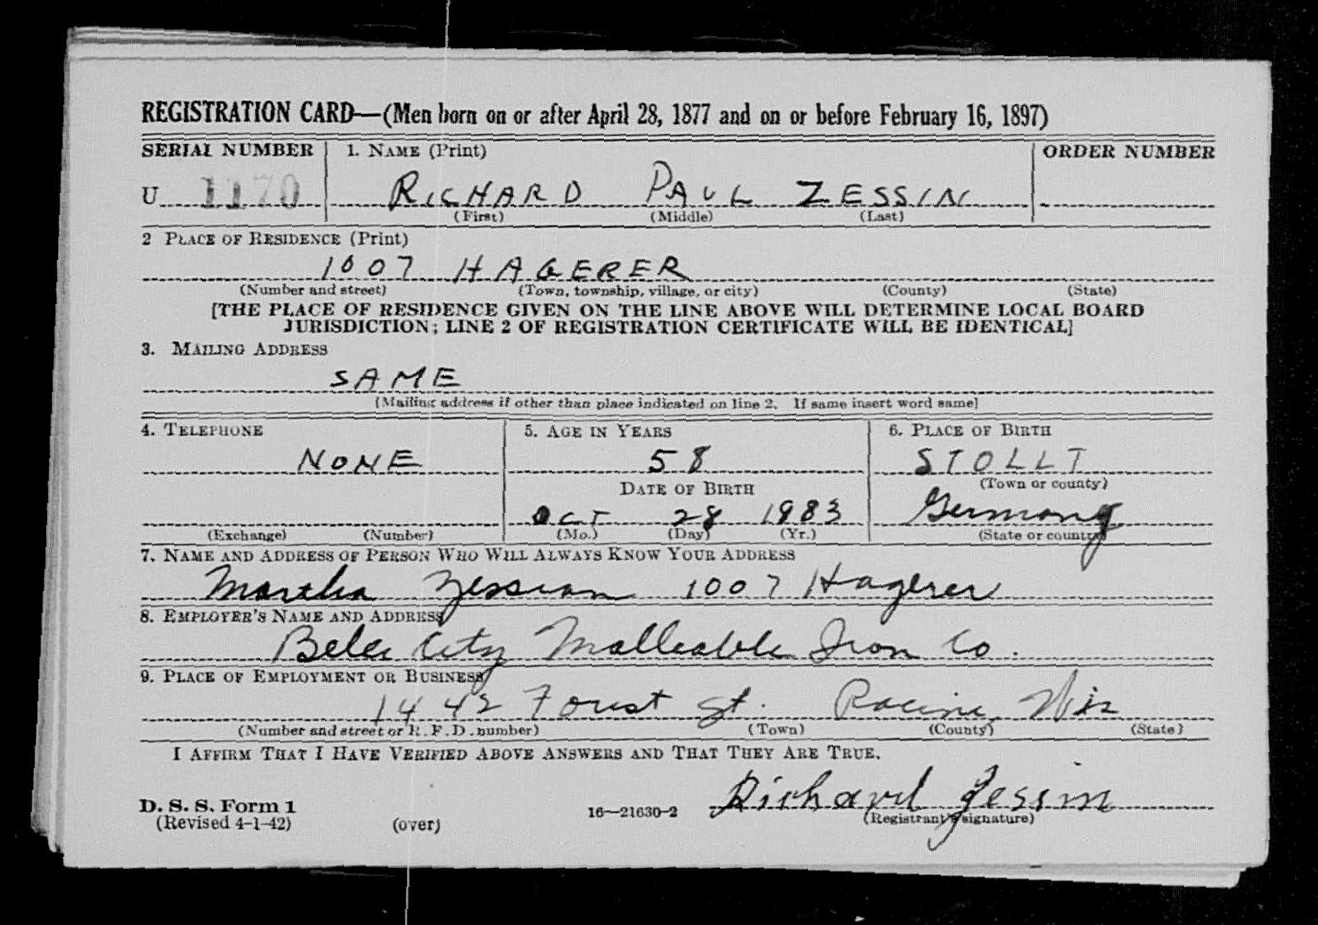 REGISTRATION CARD—(Men born on or after April 28, 1877 and on or before February 16, 1897)
SERIAL NUMBER 1. NAME (Print) ORDER NUMBER
U 1170 RICHARD PAUL ZESSIN
(First) (Middle) (Last)
2 PLACE OF RESIDENCE (Print)
1007 HAGERER
(Number and street) (Town, township, village, or city) (County) (State)
[THE PLACE OF RESIDENCE GIVEN ON THE LINE ABOVE WILL DETERMINE LOCAL BOARD
JURISDICTION; LINE 2 OF REGISTRATION CERTIFICATE WILL BE IDENTICAL]
3. MAILING ADDRESS
SAME
[Mailing address if other than place indicated on line 2. If same insert word same]
4. TELEPHONE 5. AGE IN YEARS 6. PLACE OF BIRTH
NONE 58 STOLLT
(Town or county)
DATE OF BIRTH
OCT 28 1983 Germany
(Exchange) (Number) (Mo.) (Day) (Yr.) (State or country)
7. NAME AND ADDRESS OF PERSON WHO WILL ALWAYS KNOW YOUR ADDRESS
Martha Zessian 1007 Hagerer
8. EMPLOYER'S NAME AND ADDRESS
Belle City Malleable Iron Co.
9. PLACE OF EMPLOYMENT OR BUSINESS
1442 Forest St. Racine, Wis
(Number and street or R. F. D. number) (Town) (County) (State)
I AFFIRM THAT I HAVE VERIFIED ABOVE ANSWERS AND THAT THEY ARE TRUE.
Richard Zessin
D. S. S. Form 1
(Revised 4-1-42) (over) 16—21630-2 (Registrant's signature)